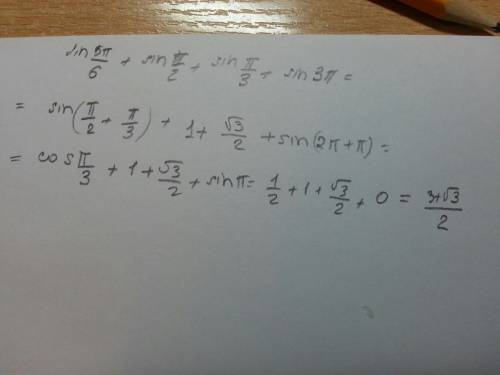 sin 5π/6 + sin π/2 + sin π/3 + sin 3π =
= sin(π/2 + π/3) + 1 + √3/2 + sin(2π+π) =
= cos π/3 + 1 + √3/2 + sin π = 1/2 + 1 + √3/2 + 0 = 3+√3/2